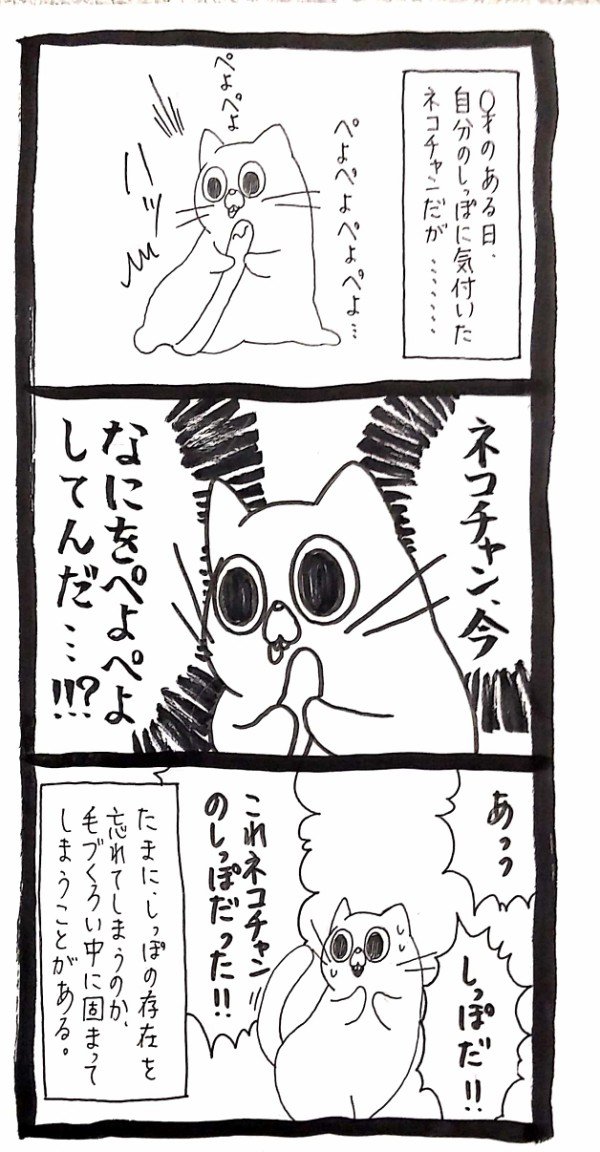 〇才のある日、
自分のしっぽに気付いた
ネコチャンだが………
ぺよぺよぺよぺよ…
ぺよぺよ
ハッ
ネコチャン、今
なにをぺよぺよ
してんだ…!!?
あっっ
しっぽだ!!
これネコチャン
のしっぽだった!!
たまに、しっぽの存在を
忘れてしまうのか、
毛づくろい中に固まって
しまうことがある。